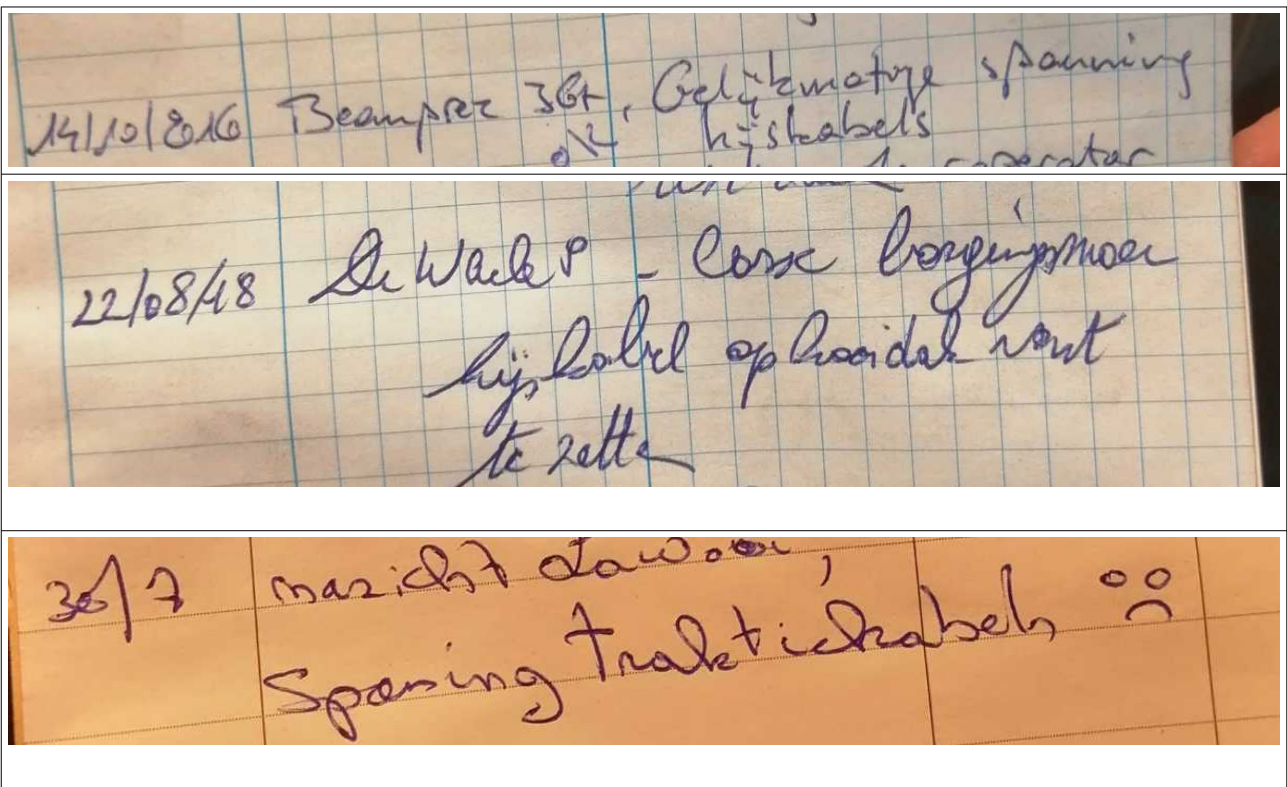 14/10/2016 Beampser 36t, Gelijkmatige spanning
ok hijskabels
operator
22/08/18 De Waele P - Losse borgingsmoer
hijskabel op kooidak vast
te zette
30/7 nazicht
Spanning traktiekabels